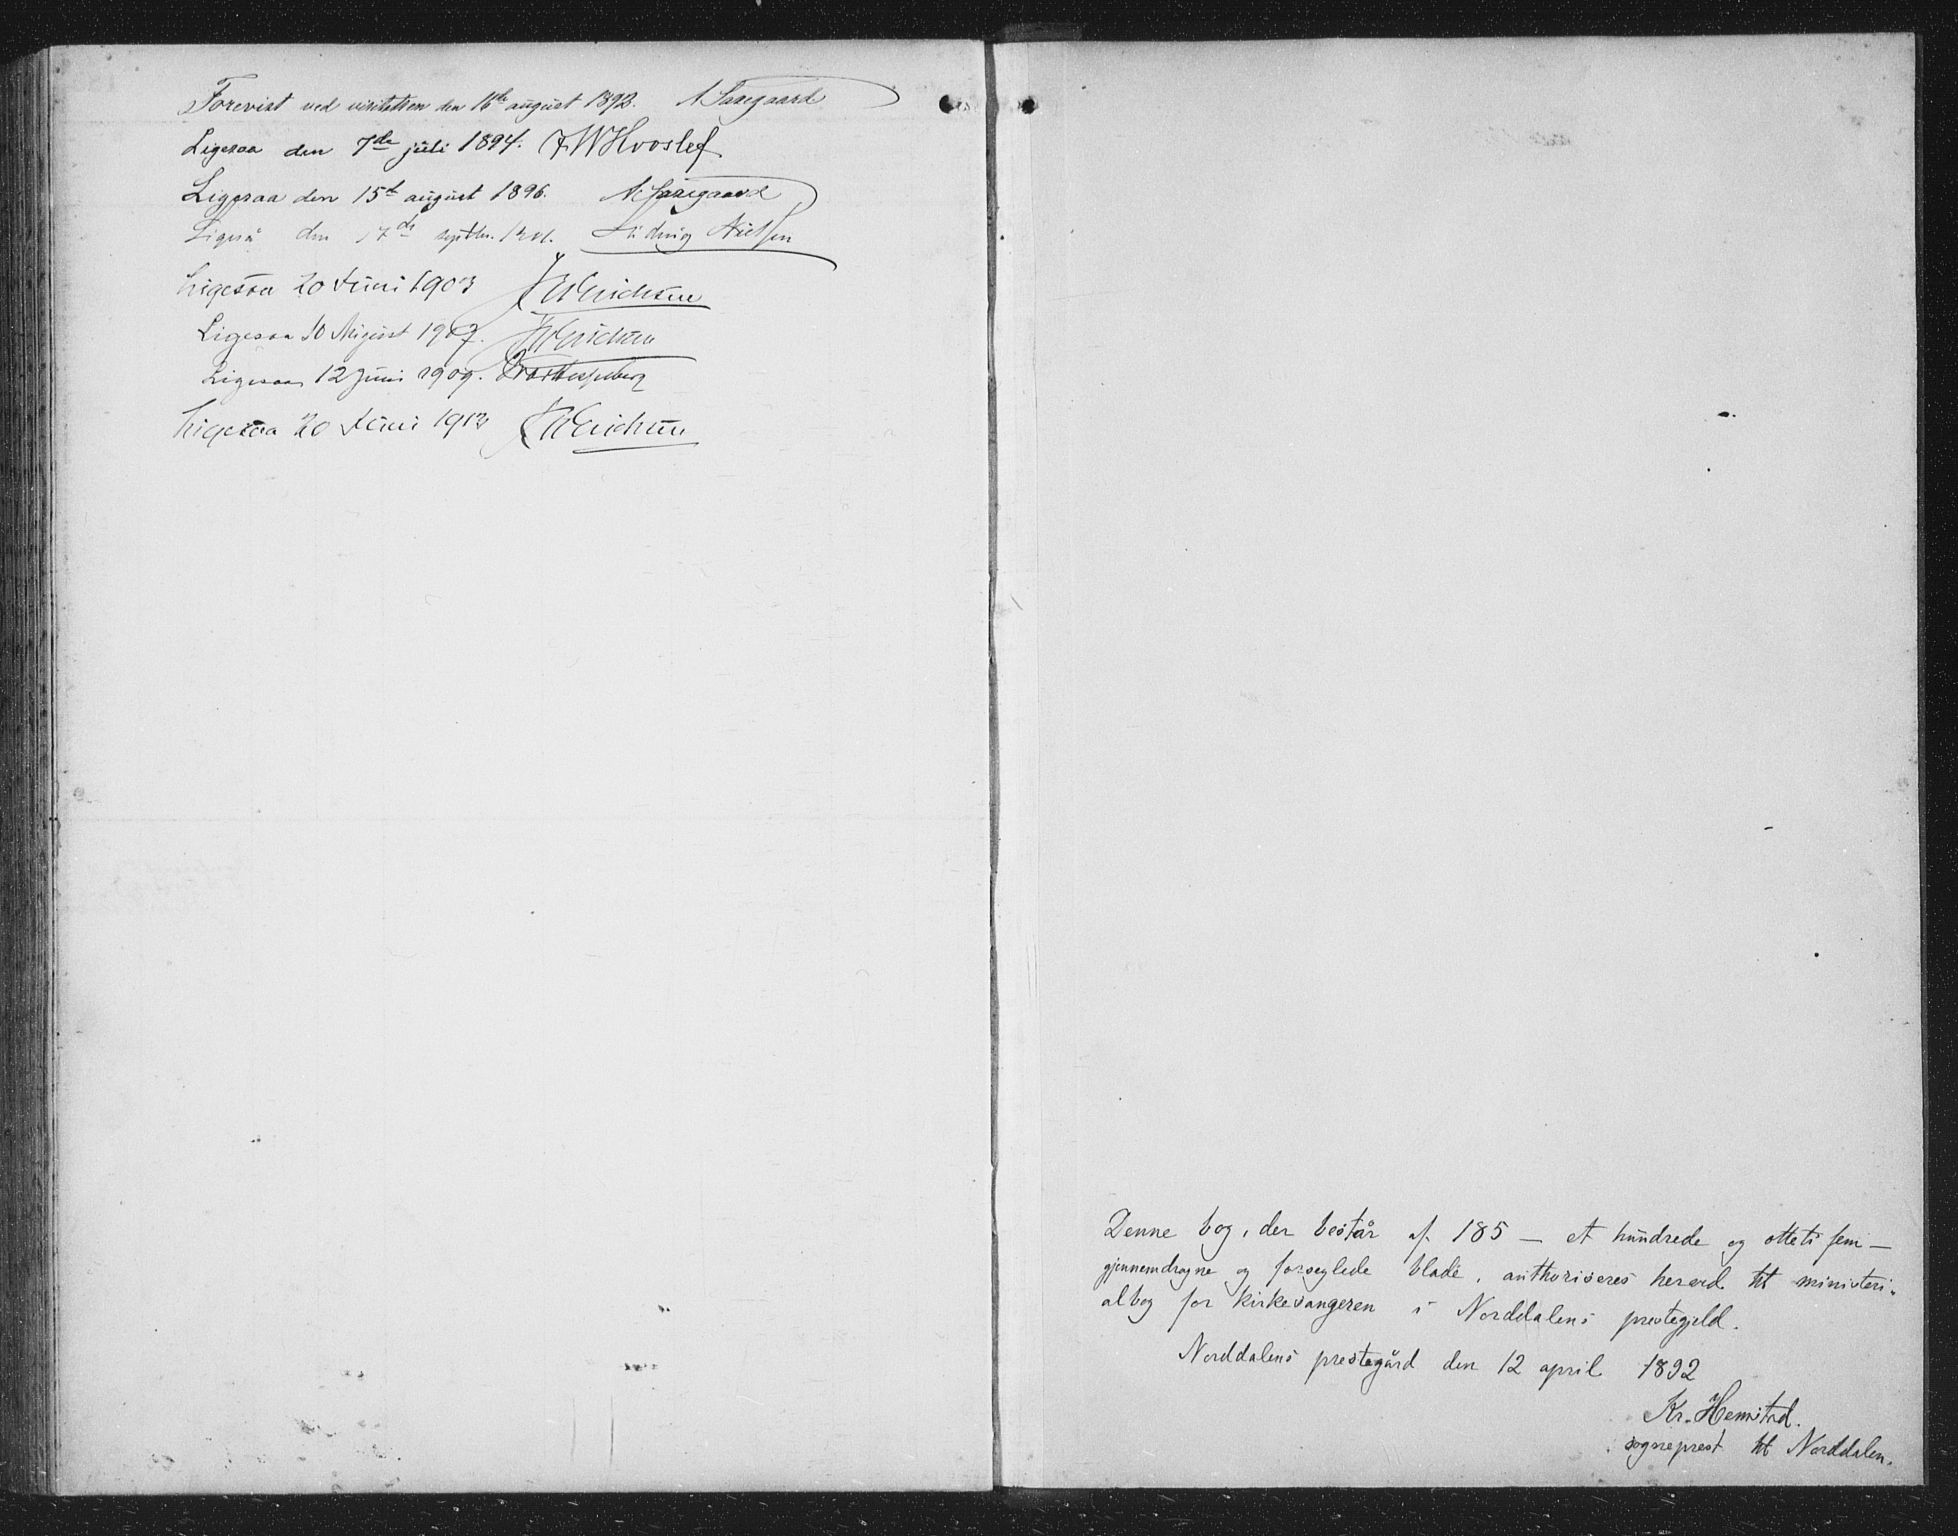 Forevist ved visitatsen den 16de august 1892. N Saxegaard
Ligesaa den 7de juli 1894. F W Hvoslef
Ligesaa den 15de august 1896. N Saxegaard
Ligeså den 17de septbr. 1901. Ludvig Nielsen
Ligesaa 20 Juni 1903 Erichsen
Ligesaa 10 August 1907. Erichsen
Ligesaa 12 juni 1909.
Ligesaa 20 Juni 1913 Erichsen
Denne bog, der består af 185 — et hundrede og otteti fem —
gjennemdragne og forseglede blade, authoriseres herved til ministeri-
albog for kirkesangeren i Norddalens prestegjeld.
Norddalens prestegård den 12 april 1892
Kr. Hemstad.
sogneprest til Norddalen.